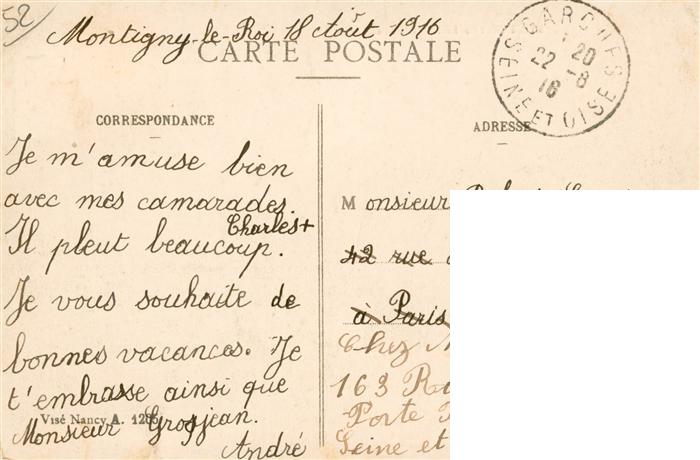 52
Montigny-le-Roi 18 Août 1916
CARTE POSTALE
GARCHES
20
22 -8
16
SEINE ET OISE
CORRESPONDANCE
Je m'amuse bien
avec mes camarades.
Charles+
Il pleut beaucoup.
Je vous souhaite de
bonnes vacances. Je
t'embrasse ainsi que
Visé Nancy A. 1286
Monsieur Grosjean.
André
ADRESSE
Monsieur
42 rue
à Paris
Chez
163
Porte
Seine et